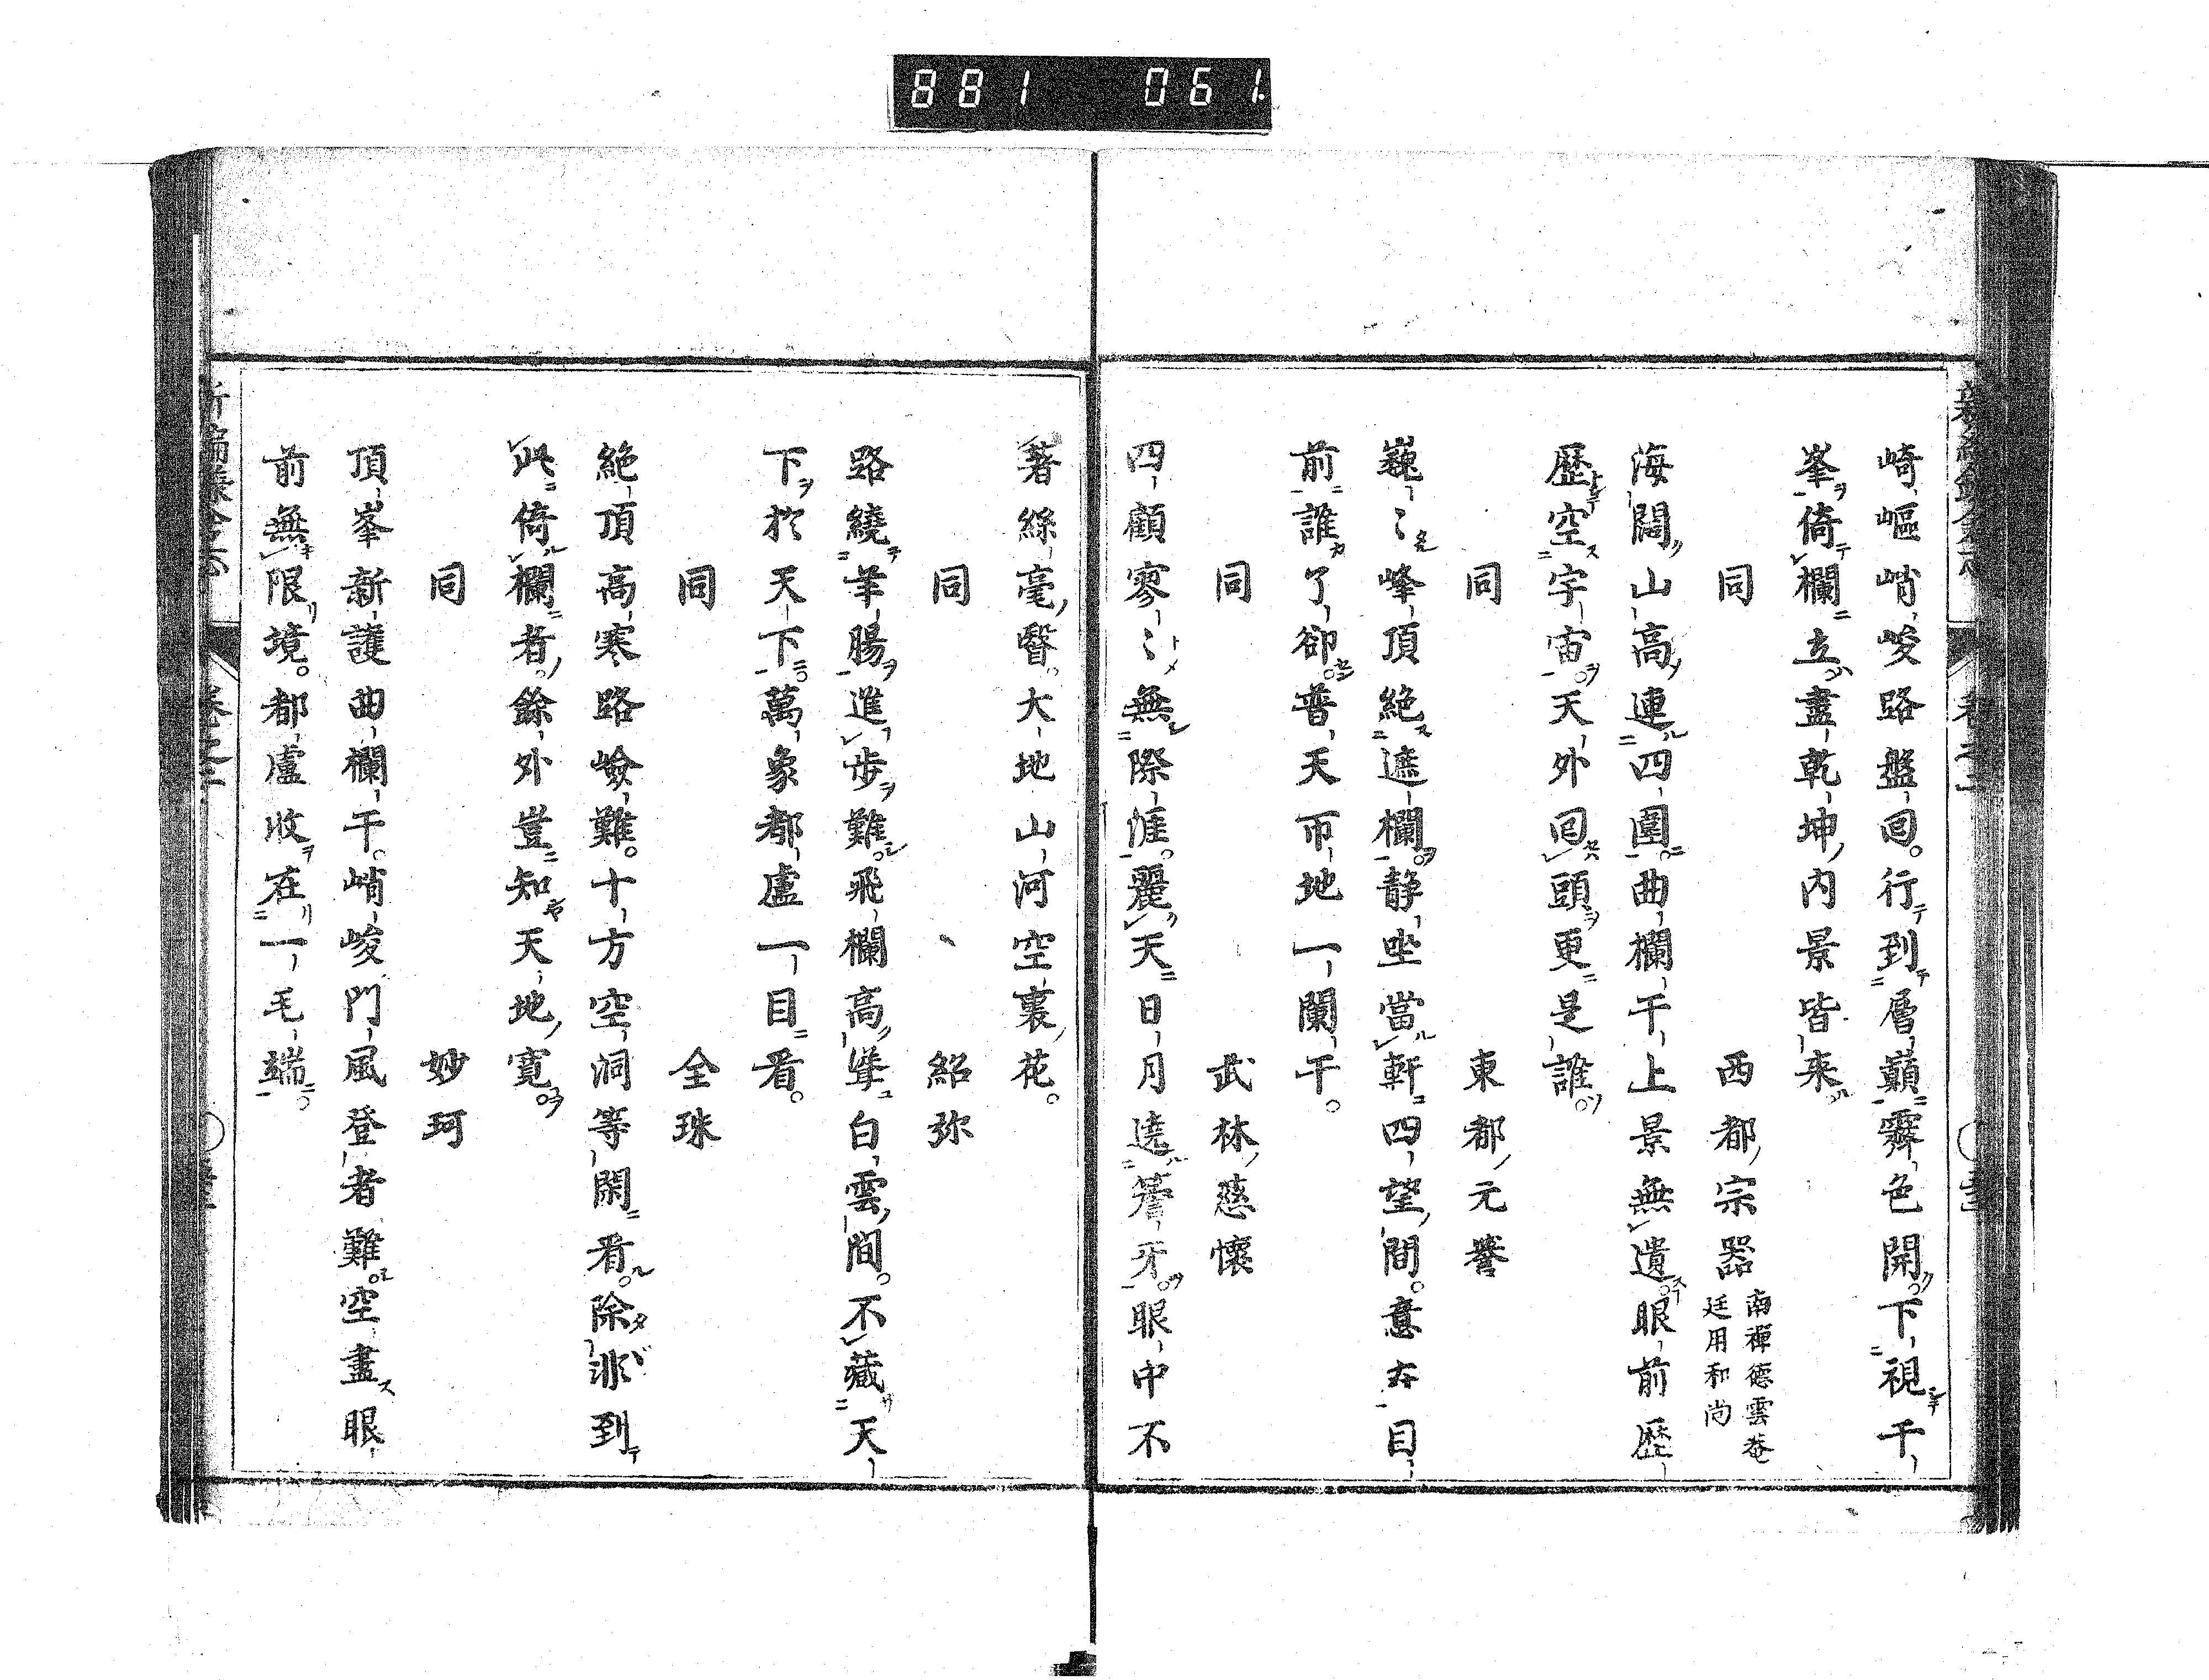 881 061
崎嶇峭峻路盤回。行到層巔霽色開。下視千
峯倚欄立盡乾坤内景皆来
同 西都宗器 南禪德雲菴廷用和尚
海闊山高連四圍。曲欄干上景無遺。眼前歷
歷空宇宙。天外回頭更是誰。
同 東都元譽
巍〻峰頂絶遮欄。静坐當軒四望間。意在目
前誰了卻。普天帀地一闌干。
同 武林慈懷
四顧寥〻無際涯。麗天日月遶簷牙。眼中不
著絲毫翳。大地山河空裏花。
同 紹弥
路繞羊腸進步難。飛欄高聳白雲間。不藏天
下於天下。萬象都盧一目看。
同 全珠
絶頂高寒路嶮難。十方空洞等閑看。除非到
此倚欄者。餘外豈知天地寬。
同 妙珂
頂峯新護曲欄干。峭峻門風登者難。空盡眼
前無限境。都盧收在一毛端。